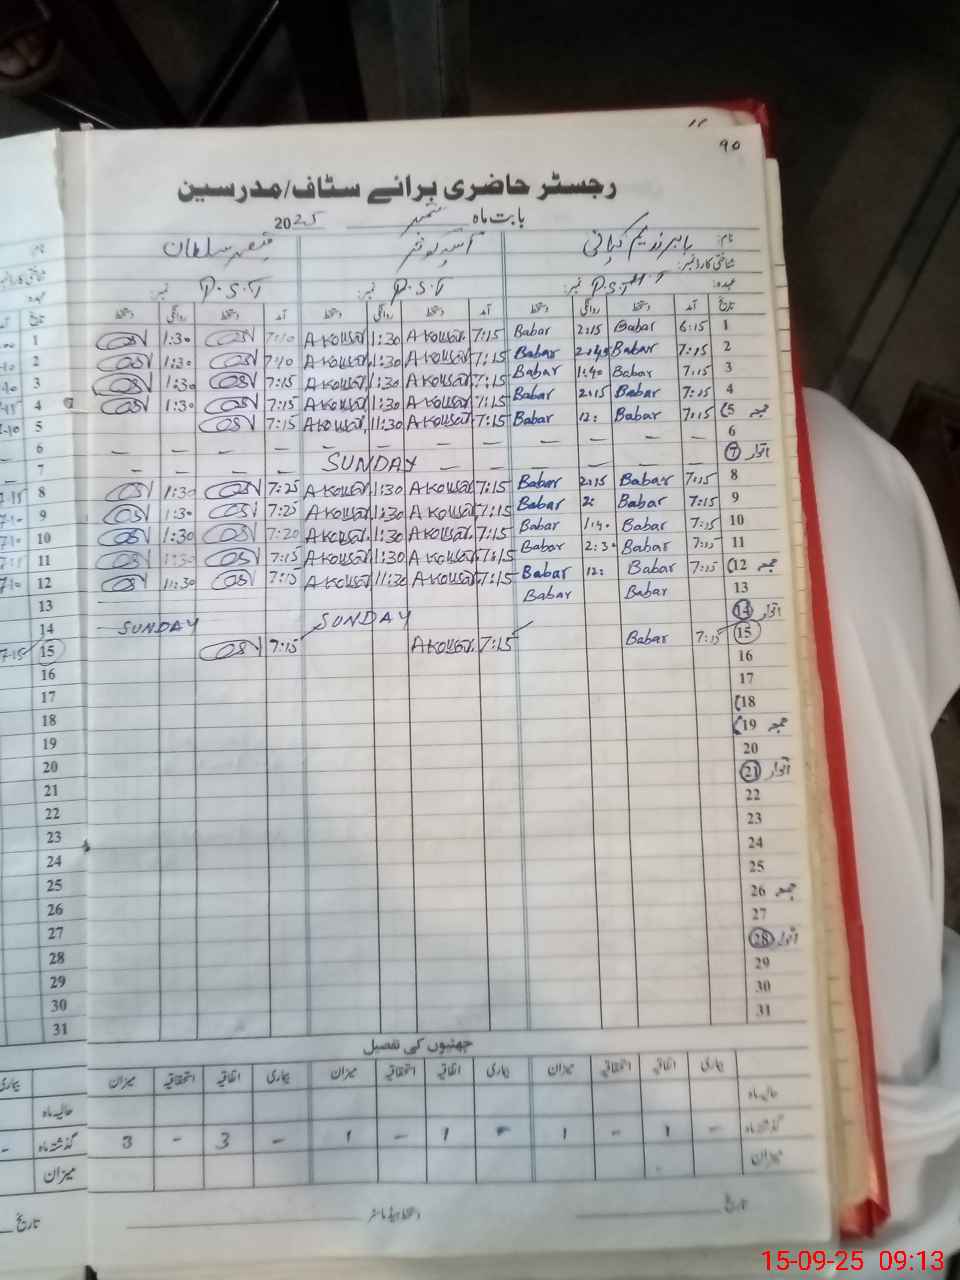 90
رجسٹر حاضری برائے سٹاف/مدرسین
بابت ماہ ستمبر 2025
نام:
شناختی کارڈ نمبر:
عہدہ: P.S.T نمبر: P.S.T نمبر: P.S.T نمبر:
تاریخ آمد دستخط روانگی دستخط آمد دستخط روانگی دستخط آمد دستخط روانگی دستخط تاریخ
1 6:15 Babar 2:15 Babar 7:15 A Kousar 1:30 A Kousar 7:10 1:30 1
2 7:15 Babar 2:45 Babar 7:15 A Kousar 1:30 A Kousar 7:10 1:30 2
3 7:15 Babar 1:40 Babar 7:15 A Kousar 1:30 A Kousar 7:15 1:30 3
4 7:15 Babar 2:15 Babar 7:15 A Kousar 1:30 A Kousar 7:15 1:30 4
جمعہ 5 7:15 Babar 12: Babar 7:15 A Kousar 11:30 A Kousar 7:15 5
6 — — — — — — — — 6
اتوار 7 — — — — — SUNDAY — — — — 7
8 7:15 Babar 2:15 Babar 7:15 A Kousar 1:30 A Kousar 7:25 1:30 8
9 7:15 Babar 2: Babar 7:15 A Kousar 1:30 A Kousar 7:25 1:30 9
10 7:15 Babar 1:40 Babar 7:15 A Kousar 1:30 A Kousar 7:20 1:30 10
11 7:15 Babar 2:30 Babar 7:15 A Kousar 1:30 A Kousar 7:15 1:30 11
جمعہ 12 7:15 Babar 12: Babar 7:15 A Kousar 11:30 A Kousar 7:15 11:30 12
13 Babar Babar 13
اتوار 14 SUNDAY SUNDAY 14
15 7:15 Babar 7:15 A Kousar 7:15 15
16 16
17 17
18 18
جمعہ 19 19
20 20
اتوار 21 21
22 22
23 23
24 24
25 25
جمعہ 26 26
27 27
اتوار 28 28
29 29
30 30
31 31
چھٹیوں کی تفصیل
بیماری اتفاقیہ استحقاقیہ میزان بیماری اتفاقیہ استحقاقیہ میزان بیماری اتفاقیہ استحقاقیہ میزان
حالیہ ماہ حالیہ ماہ
گذشتہ ماہ - 1 - 1 - 1 - 1 - 3 - 3 گذشتہ ماہ
میزان میزان
تاریخ دستخط ہیڈ ماسٹر تاریخ
15-09-25 09:13